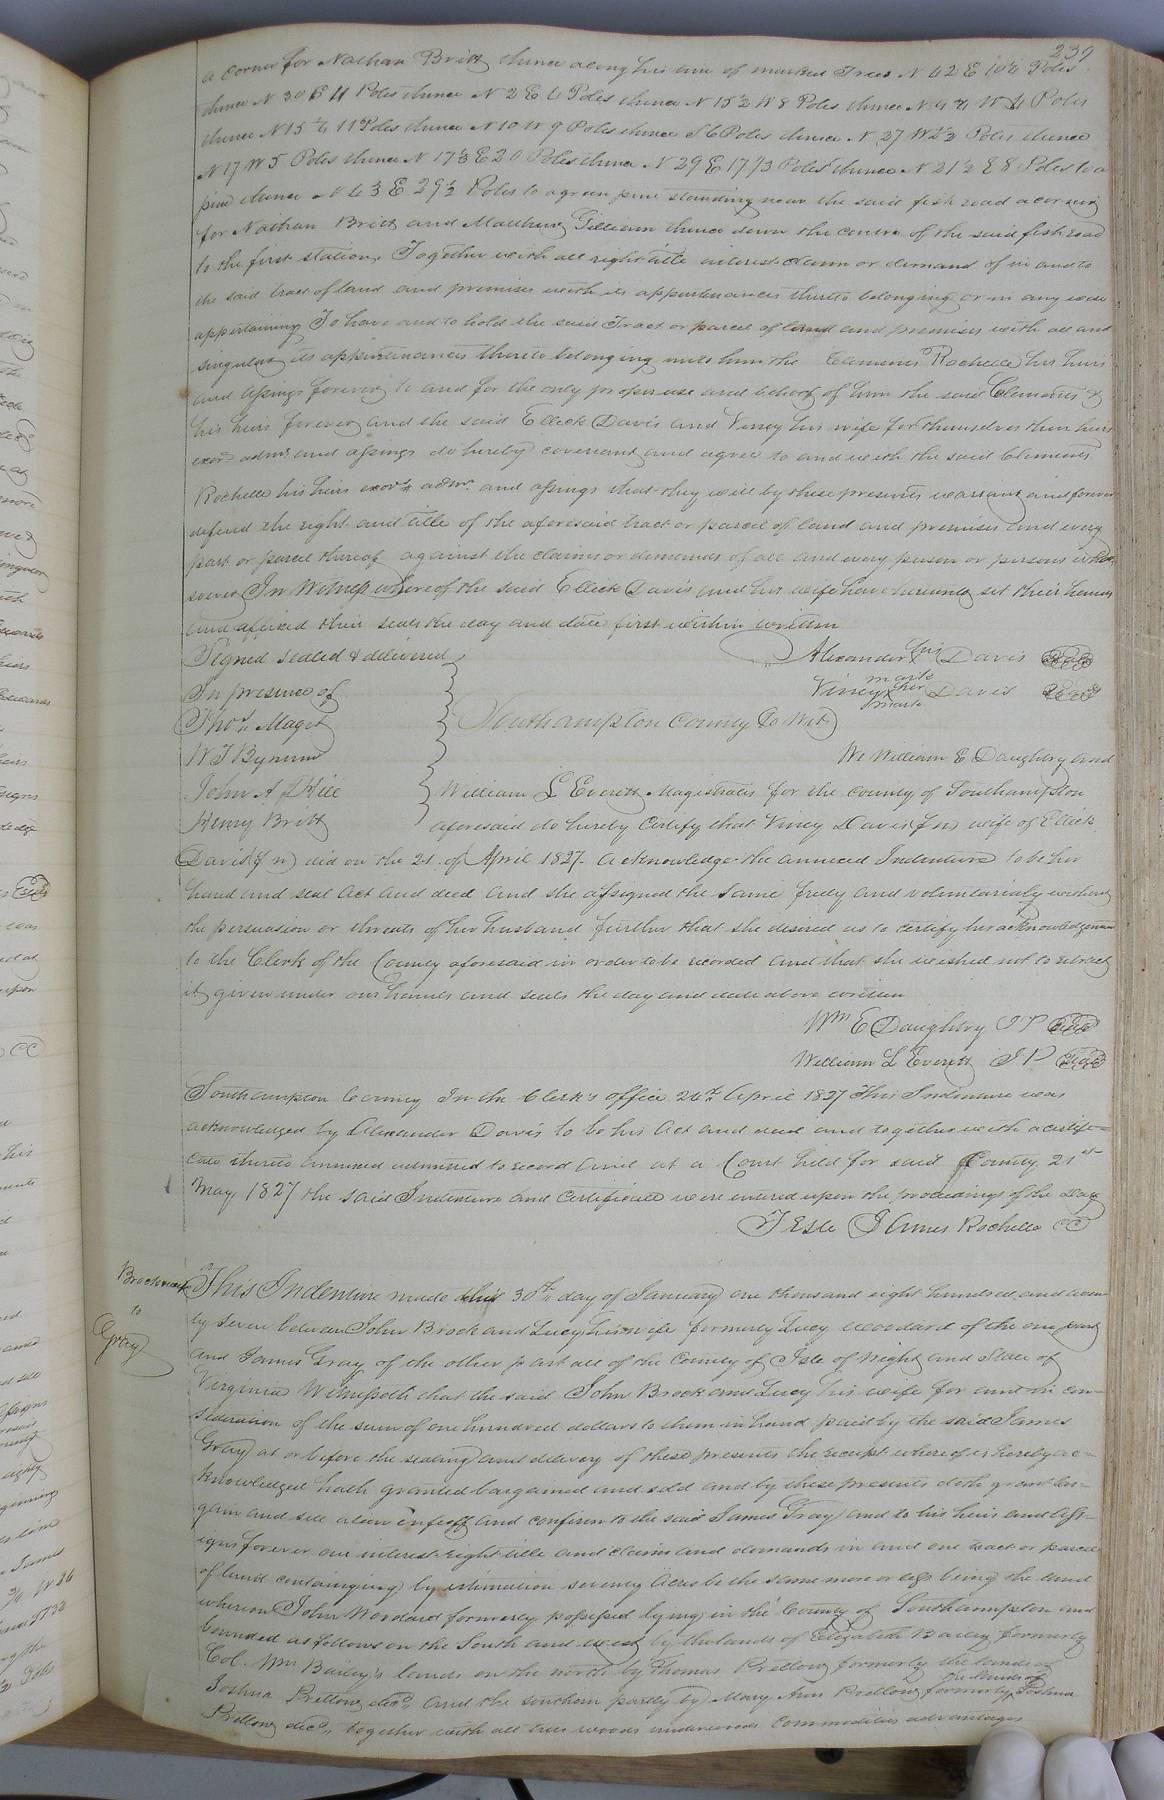 239
a corner for Nathan Britt thence along his line of marked Trees N 42 E 104 Poles
thence N 30 E 11 Poles thence N 2 E 4 Poles thence N 15½ W 8 Poles thence N 4¼ W 4 Poles
thence N 15¼ 11 Poles thence N 10 W 9 Poles thence S 6 Poles thence N 27 W 2½ Poles thence
N 17 W 5 Poles thence N 17½ E 20 Poles thence N 29 E 17⅓ Poles thence N 21½ E 8 Poles to a
pine thence N 43 E 29½ Poles to a green pine standing near the said fish road a corner
for Nathan Britt and Matthew Gilliam thence down the centre of the said fish road
to the first station, Together with all right title interest claim or demand of in and to
the said tract of land and premises with its appurtenances thereto belonging or in any wise
appertaining To have and to hold the said Tract or parcel of land and premises with all and
singular its appurtenances thereto belonging unto him the Clements Rochelle his heirs
and assigns forever to and for the only proper use and behoof of him the said Clements &
his heirs forever and the said Ellick Davis and Viney his wife for themselves their heirs
exors admrs and assigns do hereby covenant and agree to and with the said Clements
Rochelle his heirs exors admrs and assigns that they will by these presents warrant and forever
defend the right and title of the aforesaid tract or parcel of land and premises and every
part or parcel thereof against the claims or demands of all and every person or persons what-
soever In Witness whereof the said Ellick Davis and his wife have hereunto set their hands
and affixed their seals the day and date first within written
Signed sealed & delivered Alexander his Davis Seal
In presence of mark
Viney her Davis Seal
mark
Thos. Maget Southampton County To Wit
W J Bynum We William E Daughtry and
John A Hill William L Everett Magistrates for the county of Southampton
Henry Britt aforesaid do hereby certify that Viney Davis (f n) wife of Ellick
Davis (f n) did on the 21 of April 1827 acknowledge the annexed Indenture to be her
hand and seal act and deed and she assigned the same freely and voluntarialy without
the persuasion or threats of her husband further that she desired us to certify her acknowledgment
to the Clerk of the County aforesaid in order to be recorded and that she wished not to retract
it given under our hands and seals the day and date above written
Wm E Daughtry JP Seal
William L Everett JP Seal
Southampton County In the Clerk's office 24th April 1827 This Indenture was
acknowledged by Alexander Davis to be his act and deed and together with a certifi-
cate thereto annexed admitted to record And at a Court held for said County 21st
May 1827 the said Indenture and Certificate were entered upon the proceedings of the day
Teste James Rochelle CC
Brock
to
Gray
This Indenture made this 30th day of January one thousand eight hundred and twen-
ty seven between John Brock and Lucy his wife formerly Lucy Woodard of the one part
and James Gray of the other part all of the County of Isle of Wight and State of
Virginia Witnesseth that the said John Brock and Lucy his wife for and in con-
sideration of the sum of one hundred dollars to them in hand paid by the said James
Gray at or before the sealing and delivery of these presents the receipt whereof is hereby ac-
knowledged hath granted bargained and sold and by these presents doth grant bar-
gain and sell alien enfeoff and confirm to the said James Gray and to his heirs and ass-
igns forever our interest right title and claims and demands in and one tract or parcel
of land containging by estimation seventy acres be the same more or less being the land
whereon John Woodard formerly possessed lying in the County of Southampton and
bounded as follows on the South and west by the lands of Elizabeth Bailey formerly
Col. Wm Bailey's lands on the north by Thomas Pretlow formerly the lands of
Joshua Pretlow decd. and the southern partly by Mary Ann Pretlow formerly the lands of Joshua
Pretlow decd., together with all trees woods underwoods commodities advantages